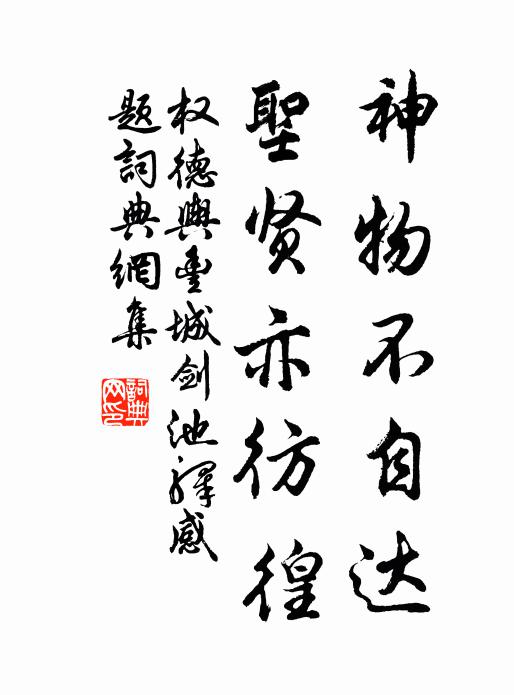 神物不自达
聖贤亦彷徨
权德輿豊城剑池驛感
題詞典網集
詞典网印